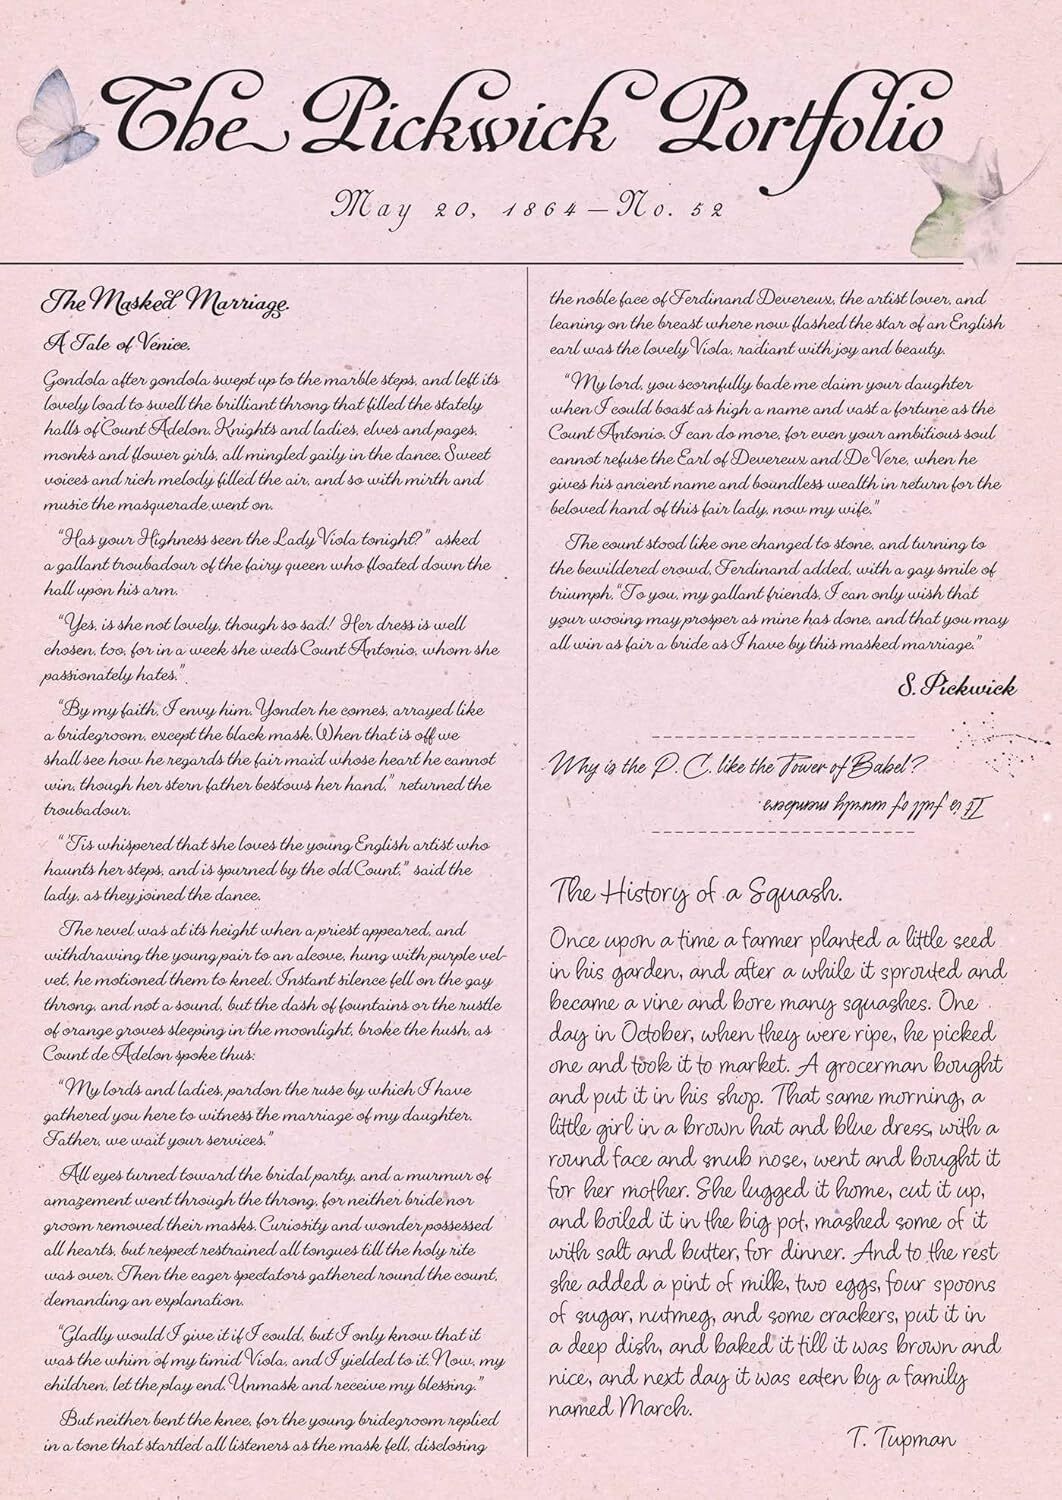 The Pickwick Portfolio
May 20, 1864—No. 52
The Masked Marriage.
A Tale of Venice.
Gondola after gondola swept up to the marble steps, and left its
lovely load to swell the brilliant throng that filled the stately
halls of Count Adelon. Knights and ladies, elves and pages,
monks and flower girls, all mingled gaily in the dance. Sweet
voices and rich melody filled the air, and so with mirth and
music the masquerade went on.
“Has your Highness seen the Lady Viola tonight?” asked
a gallant troubadour of the fairy queen who floated down the
hall upon his arm.
“Yes, is she not lovely, though so sad! Her dress is well
chosen, too, for in a week she weds Count Antonio, whom she
passionately hates.”
“By my faith, I envy him. Yonder he comes, arrayed like
a bridegroom, except the black mask. When that is off we
shall see how he regards the fair maid whose heart he cannot
win, though her stern father bestows her hand,” returned the
troubadour.
“’Tis whispered that she loves the young English artist who
haunts her steps, and is spurned by the old Count,” said the
lady, as they joined the dance.
The revel was at its height when a priest appeared, and
withdrawing the young pair to an alcove, hung with purple vel-
vet, he motioned them to kneel. Instant silence fell on the gay
throng, and not a sound, but the dash of fountains or the rustle
of orange groves sleeping in the moonlight, broke the hush, as
Count de Adelon spoke thus:
“My lords and ladies, pardon the ruse by which I have
gathered you here to witness the marriage of my daughter.
Father, we wait your services.”
All eyes turned toward the bridal party, and a murmur of
amazement went through the throng, for neither bride nor
groom removed their masks. Curiosity and wonder possessed
all hearts, but respect restrained all tongues till the holy rite
was over. Then the eager spectators gathered round the count,
demanding an explanation.
“Gladly would I give it if I could, but I only know that it
was the whim of my timid Viola, and I yielded to it. Now, my
children, let the play end. Unmask and receive my blessing.”
But neither bent the knee, for the young bridegroom replied
in a tone that startled all listeners as the mask fell, disclosing
the noble face of Ferdinand Devereux, the artist lover, and
leaning on the breast where now flashed the star of an English
earl was the lovely Viola, radiant with joy and beauty.
“My lord, you scornfully bade me claim your daughter
when I could boast as high a name and vast a fortune as the
Count Antonio. I can do more, for even your ambitious soul
cannot refuse the Earl of Devereux and De Vere, when he
gives his ancient name and boundless wealth in return for the
beloved hand of this fair lady, now my wife.”
The count stood like one changed to stone, and turning to
the bewildered crowd, Ferdinand added, with a gay smile of
triumph, “To you, my gallant friends, I can only wish that
your wooing may prosper as mine has done, and that you may
all win as fair a bride as I have by this masked marriage.”
S. Pickwick
Why is the P. C. like the Tower of Babel?
It is full of unruly members.
The History of a Squash.
Once upon a time a farmer planted a little seed
in his garden, and after a while it sprouted and
became a vine and bore many squashes. One
day in October, when they were ripe, he picked
one and took it to market. A grocerman bought
and put it in his shop. That same morning, a
little girl in a brown hat and blue dress, with a
round face and snub nose, went and bought it
for her mother. She lugged it home, cut it up,
and boiled it in the big pot, mashed some of it
with salt and butter, for dinner. And to the rest
she added a pint of milk, two eggs, four spoons
of sugar, nutmeg, and some crackers, put it in
a deep dish, and baked it till it was brown and
nice, and next day it was eaten by a family
named March.
T. Tupman